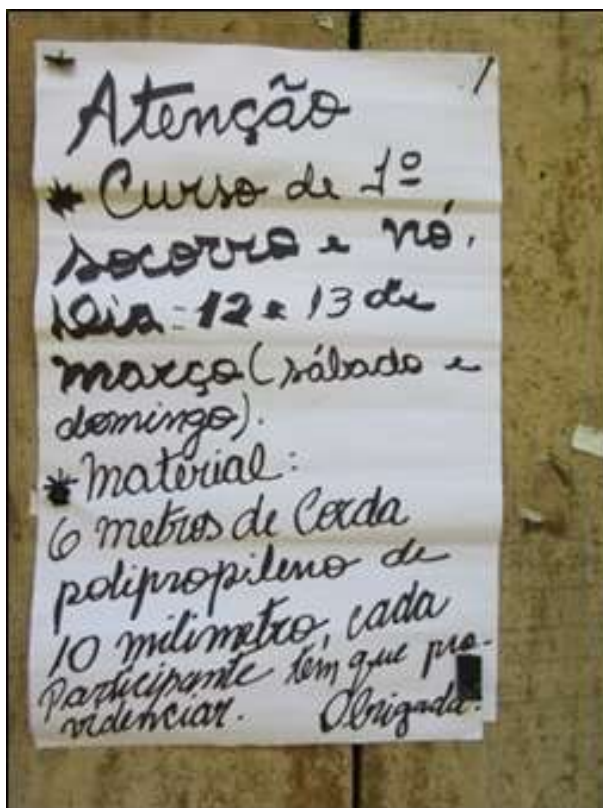 Atenção
* Curso de 1º
socorro e nó,
Dia: 12 e 13 de
março (sábado e
domingo).
* Material:
6 metros de Corda
polipropileno de
10 milimetro, cada
Participante tem que pro-
videnciar. Obrigada.